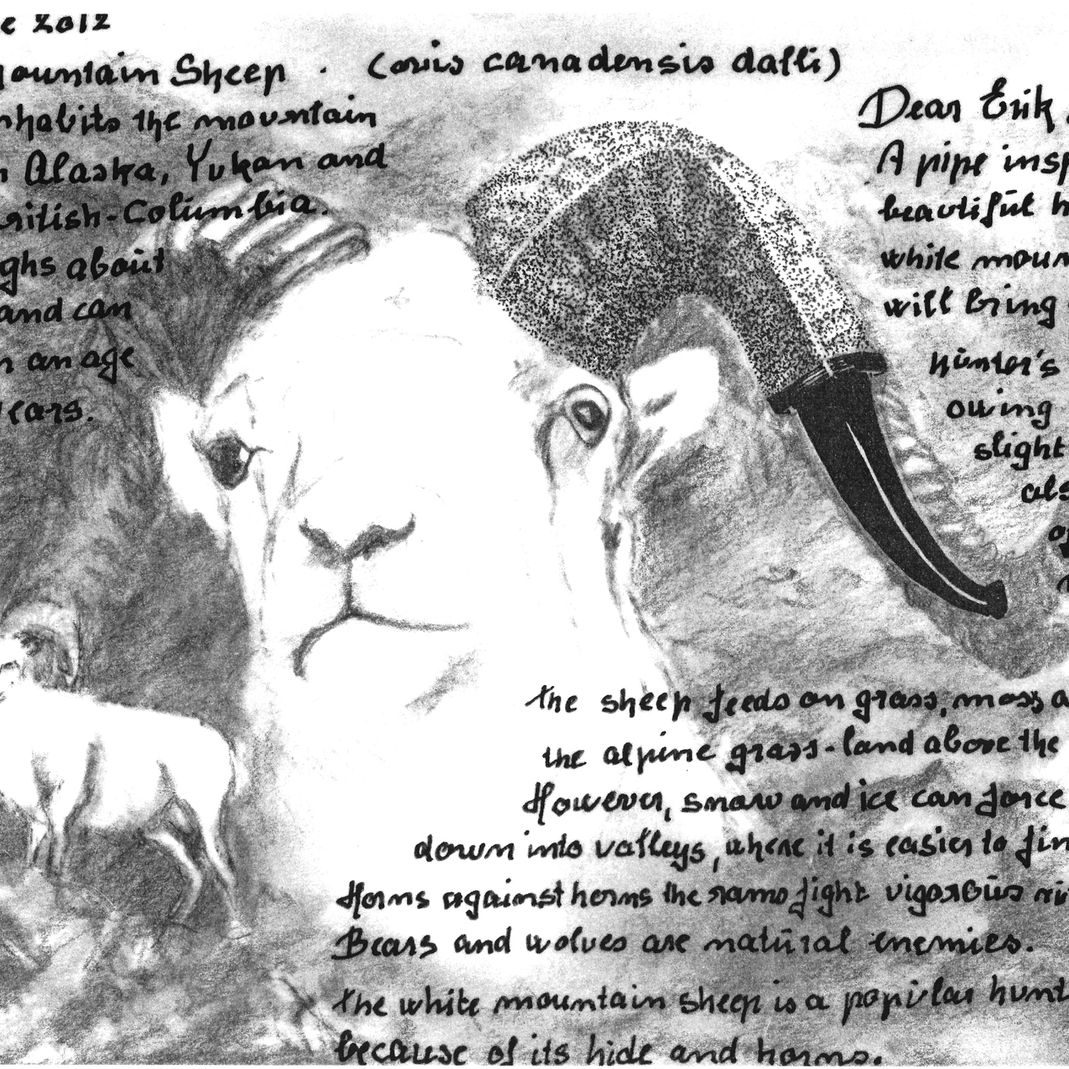 e 2012
ountain Sheep . (ovis canadensis dalli)
nhabits the mountain
n Alaska, Yukan and
ritish-Columbia.
ghs about
and can
n an age
years.
Dear Erik,
A pipe insp
beautiful h
white moun
will bring
Hünter's
owing
slight
als
of
the sheep feeds on grass, moss a
the alpine grass-land above the
However, snow and ice can force
down into valleys, where it is easier to fin
Horns against horns the rams fight vigoroüs ri
Bears and wolves are natüral enemies.
the white mountain sheep is a popular hunt
because of its hide and horns.